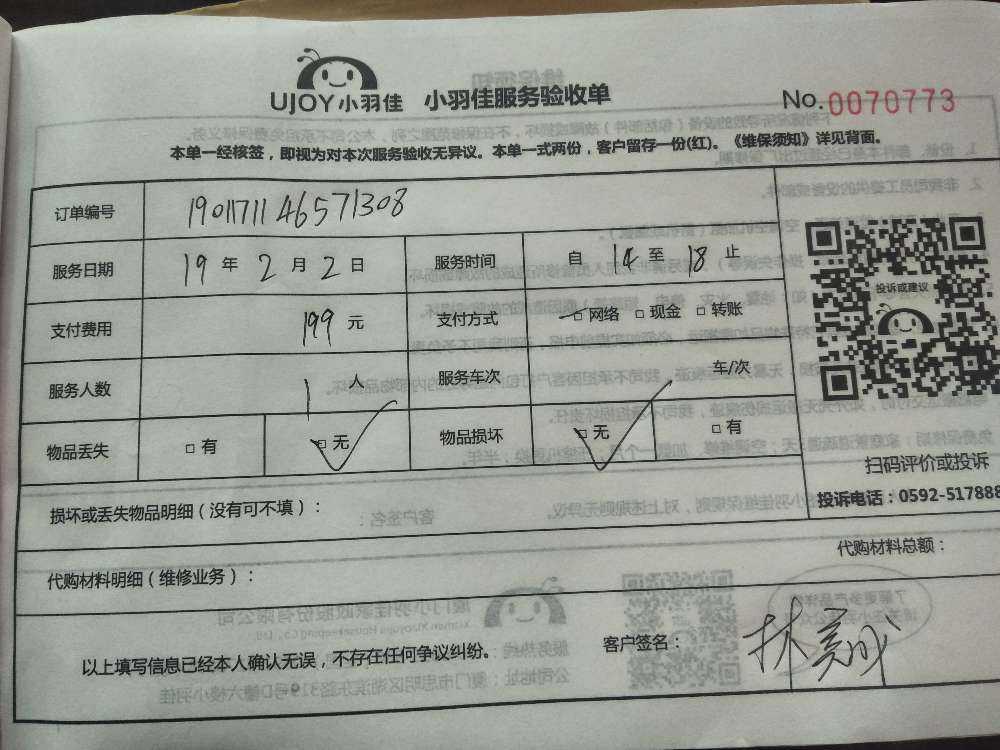 UJOY小羽佳 小羽佳服务验收单 No.0070773
本单一经核签，即视为对本次服务验收无异议。本单一式两份，客户留存一份(红)。《维保须知》详见背面。
订单编号 1901171146571308
服务日期 19年2月2日 服务时间 自14至18止
投诉或建议
支付费用 199元 支付方式 □网络 □现金 □转账
服务人数 1人 服务车次 车/次
物品丢失 □有 □无 物品损坏 □无 □有
扫码评价或投诉
损坏或丢失物品明细（没有可不填）：
投诉电话：0592-517888
代购材料明细（维修业务）： 代购材料总额：
以上填写信息已经本人确认无误，不存在任何争议纠纷。 客户签名： 林